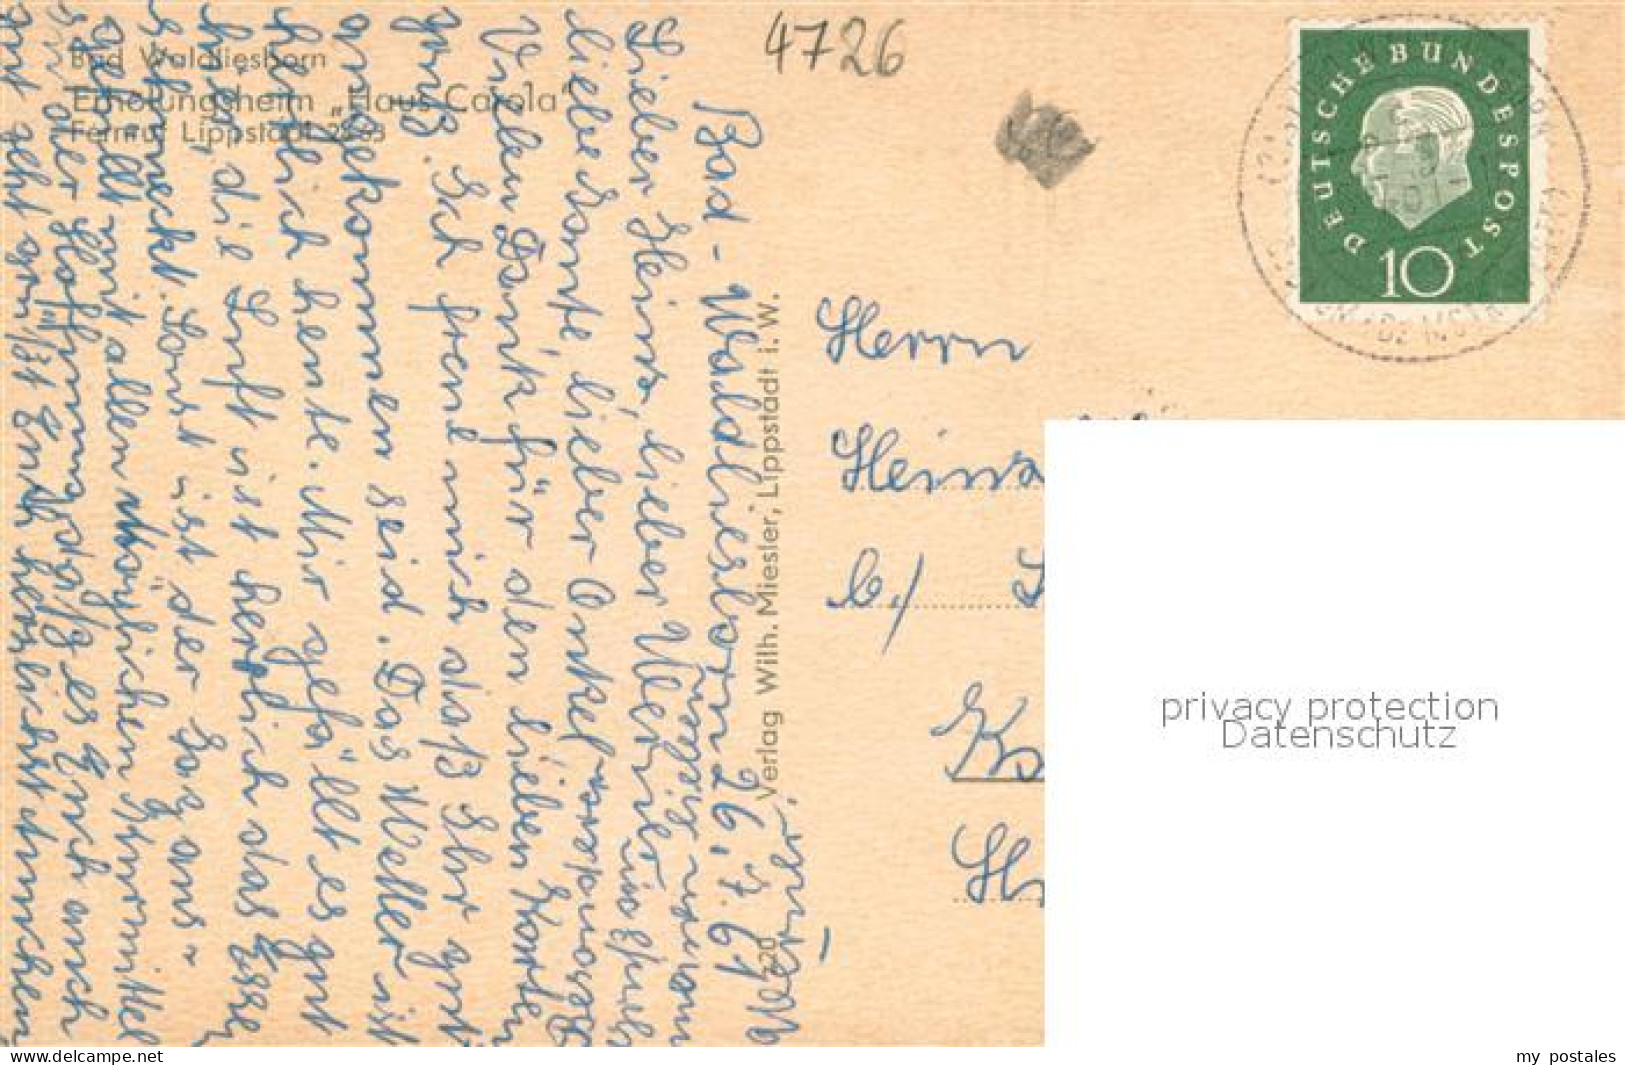 Bad Waldliesborn
Erholungsheim „Haus Carola“
Fernruf Lippstadt 28 63
4726
DEUTSCHE BUNDESPOST
10
Bad-Waldliesborn 26.7.61
Lieber Heinz, lieber Werner
liebe Tante, lieber Onkel
Vielen Dank für den lieben Karten
gruß. Ich freue mich daß Ihr gut
angekommen seid. Das Wetter ist
herrlich heute. Mir gefällt es gut
hier, die Luft ist herrlich das Essen
schmeckt. Sonst ist der
gefüllt mit allen möglichen
In der Hoffnung daß es Euch auch
gut geht grüßt Euch herzlichst
Verlag Wilh. Miesler, Lippstadt i. W.
520
Herrn
Hein
b/
privacy protection
Datenschutz
www.delcampe.net
my postales